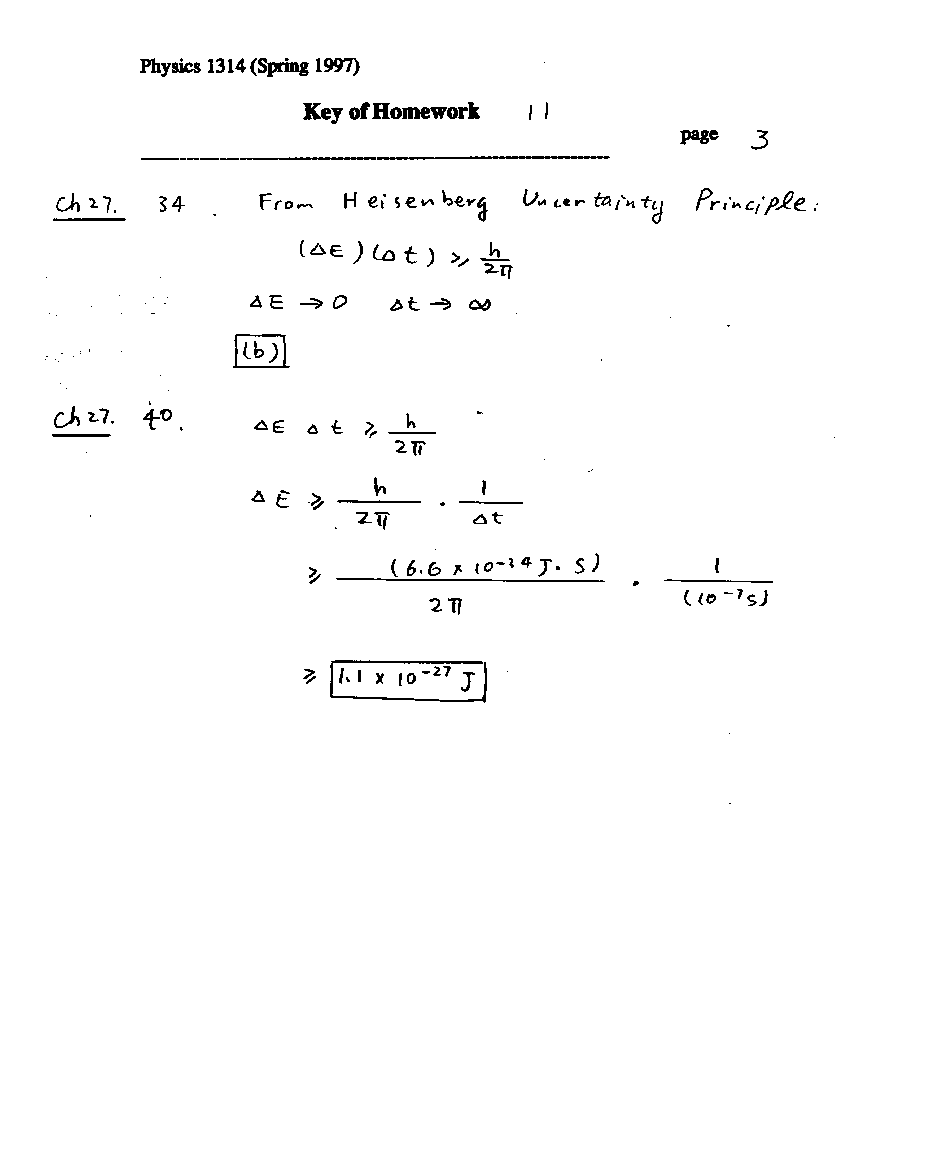 Physics 1314 (Spring 1997)
Key of Homework 11
page 3
Ch 27. 34. From Heisenberg Uncertainty Principle:
(ΔE)(Δt) ≥ h/2π
ΔE → 0 Δt → ∞
(b)
Ch 27. 40. ΔE Δt ≥ h/2π
ΔE ≥ h/2π · 1/Δt
≥ (6.6 × 10⁻³⁴ J·S)/2π · 1/(10⁻⁷S)
≥ 1.1 × 10⁻²⁷ J